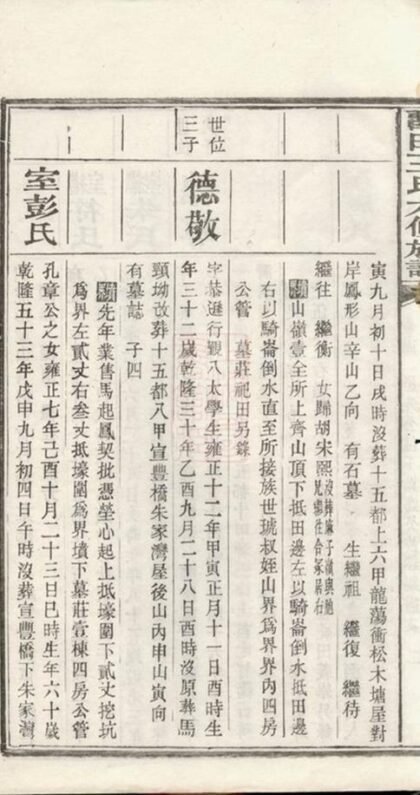 寅九月初十日戌時沒葬十五都上六甲龍蕩衝松木塘屋對
岸鳳形山辛山乙向 有石墓 生繼祖 繼復 繼待
繼往 繼衡 女歸胡宋熙
山嶺壹全所上齊山頂下抵田邊左以騎崙倒水抵田邊
右以騎崙倒水直至所接族世琥叔姪山界爲界界內四房
公管 墓莊祀田另錄
世位
三子
德敬
字恭遜行觀八太學生雍正十二年甲寅正月十一日酉時生
年三十二歲乾隆三十年乙酉九月二十八日酉時沒原葬馬
頸坳改葬十五都八甲宣豐橋朱家灣屋後山內申山寅向
有墓誌 子四
先年業售馬起鳳契批憑塋心起上抵壕圍下貳丈挖坑
爲界左貳丈右叁丈抵壕圍爲界墳下墓莊壹棟四房公管
室彭氏
孔章公之女雍正七年己酉十月二十三日巳時生年六十歲
乾隆五十三年戊申九月初四日午時沒葬宣豐橋下朱家灣